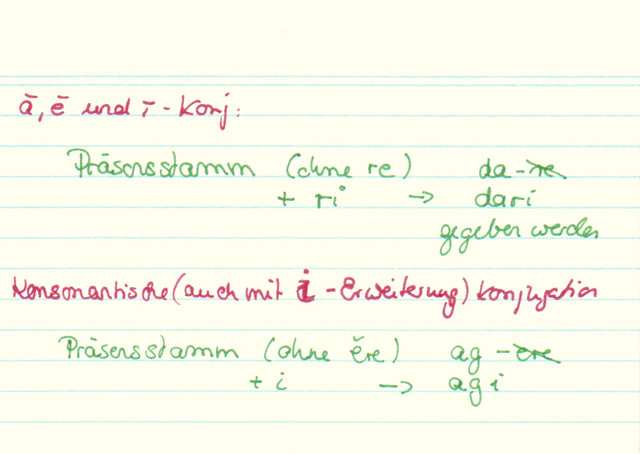 ā, ē und ī - Konj:
Präsensstamm (ohne re) da-re
+ ri -> dari
gegeben werden
Konsonantische (auch mit i - Erweiterung) Konjugation
Präsensstamm (ohne ĕre) ag - ere
+ i -> agi